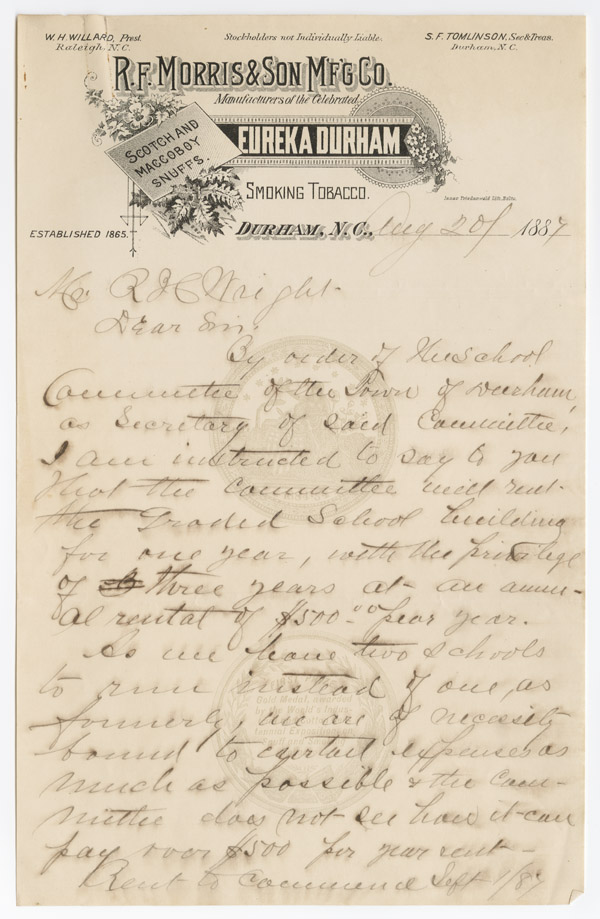 W. H. WILLARD, Prest.
Raleigh, N.C.
Stockholders not Individually Liable.
S. F. TOMLINSON, Sec & Treas.
Durham, N.C.
R. F. MORRIS & SON MF'G CO.
Manufacturers of the Celebrated
SCOTCH AND
MACCOBOY
SNUFFS.
EUREKA DURHAM
SMOKING TOBACCO.
Isaac Friedenwald Lith. Balto.
ESTABLISHED 1865.
DURHAM, N.C., Aug 20/ 1887
Mr. R H Wright
Dear Sir,
By order of the School
Committee of the Town of Durham,
as Secretary of said Committee,
I am instructed to say to you
that the Committee will rent
the Graded School building
for one year, with the privilege
of three years at an annu-
al rental of $500.00 pear year.
As we have two schools
to run instead of one, as
formerly, we are of necessity
bound to curtail expenses as
much as possible & the Com-
mittee does not see how it can
pay over $500 per year rent-
Rent to commend Sept 1/87